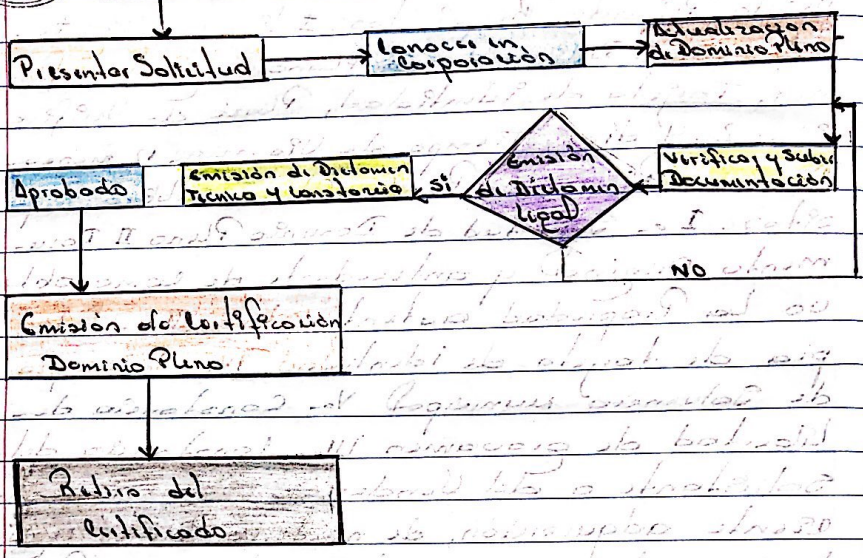 Presentar Solicitud
Conocer en
Corporación
Actualización
de Dominio Pleno
Verificar y Subir
Documentación
Emisión
de Dictamen
legal
SI
NO
Emisión de Dictamen
Técnico y Constancia
Aprobado
Emisión de Certificación
Dominio Pleno
Retiro del
Certificado